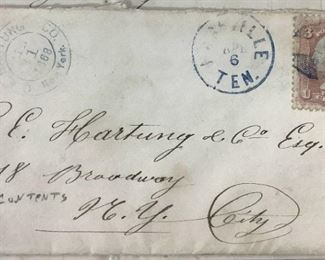 CO.
1
68
York.
VILLE
6
TEN.
3
E. Hartung & Co Esq.
18 Broadway
CONTENTS
N. Y. City